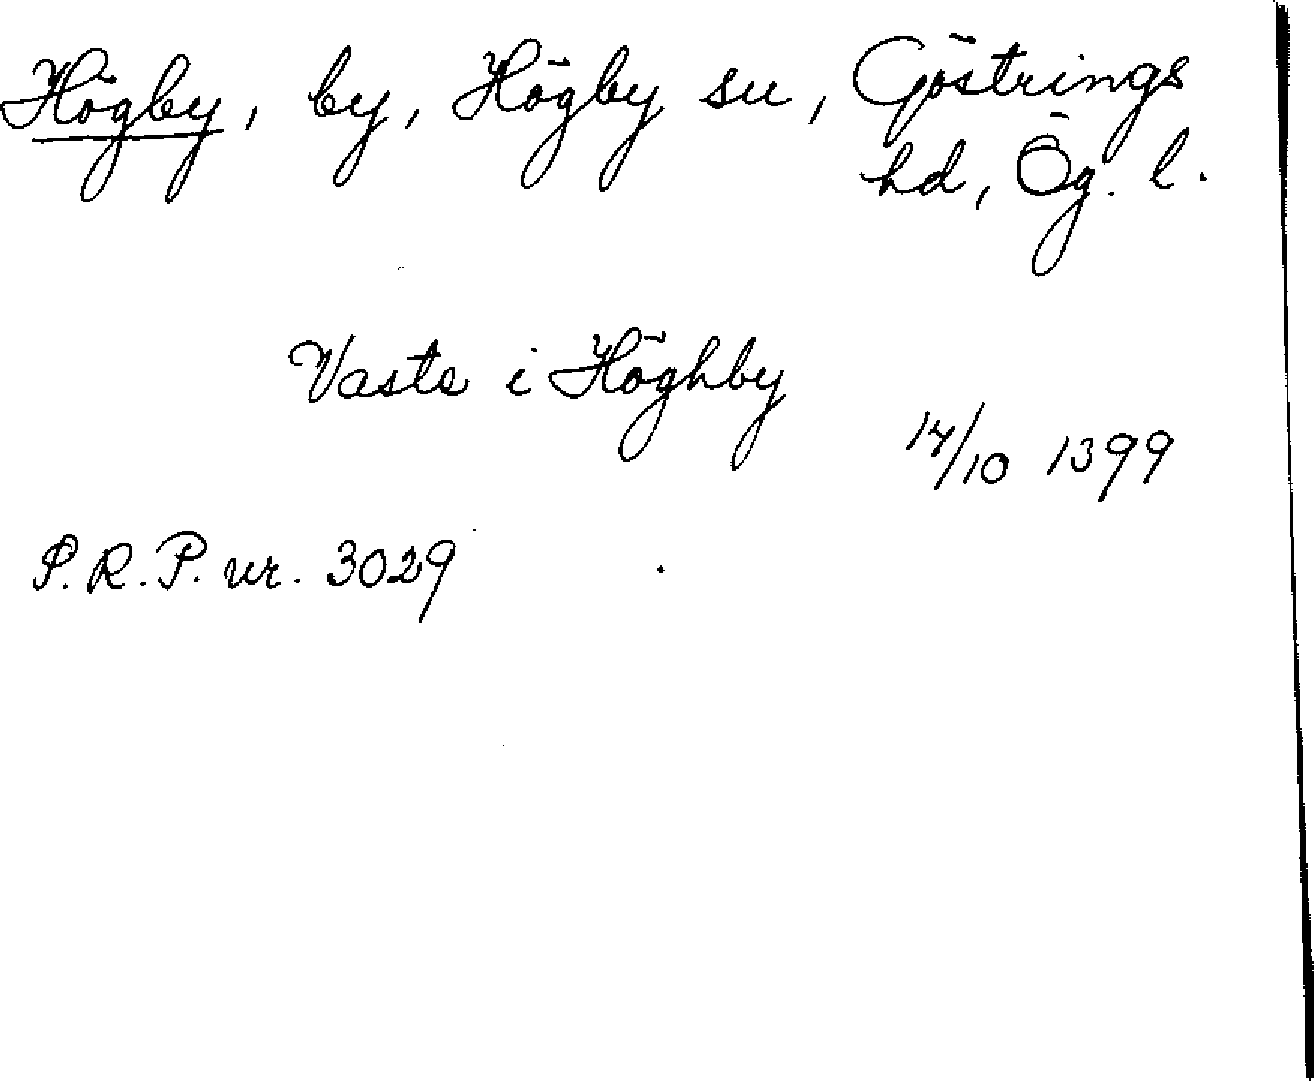 Högby, by, Högby sn, Göstrings
hd, Ög. l.
Vaste i Höghby
14/10 1399
P.R.P. nr. 3029